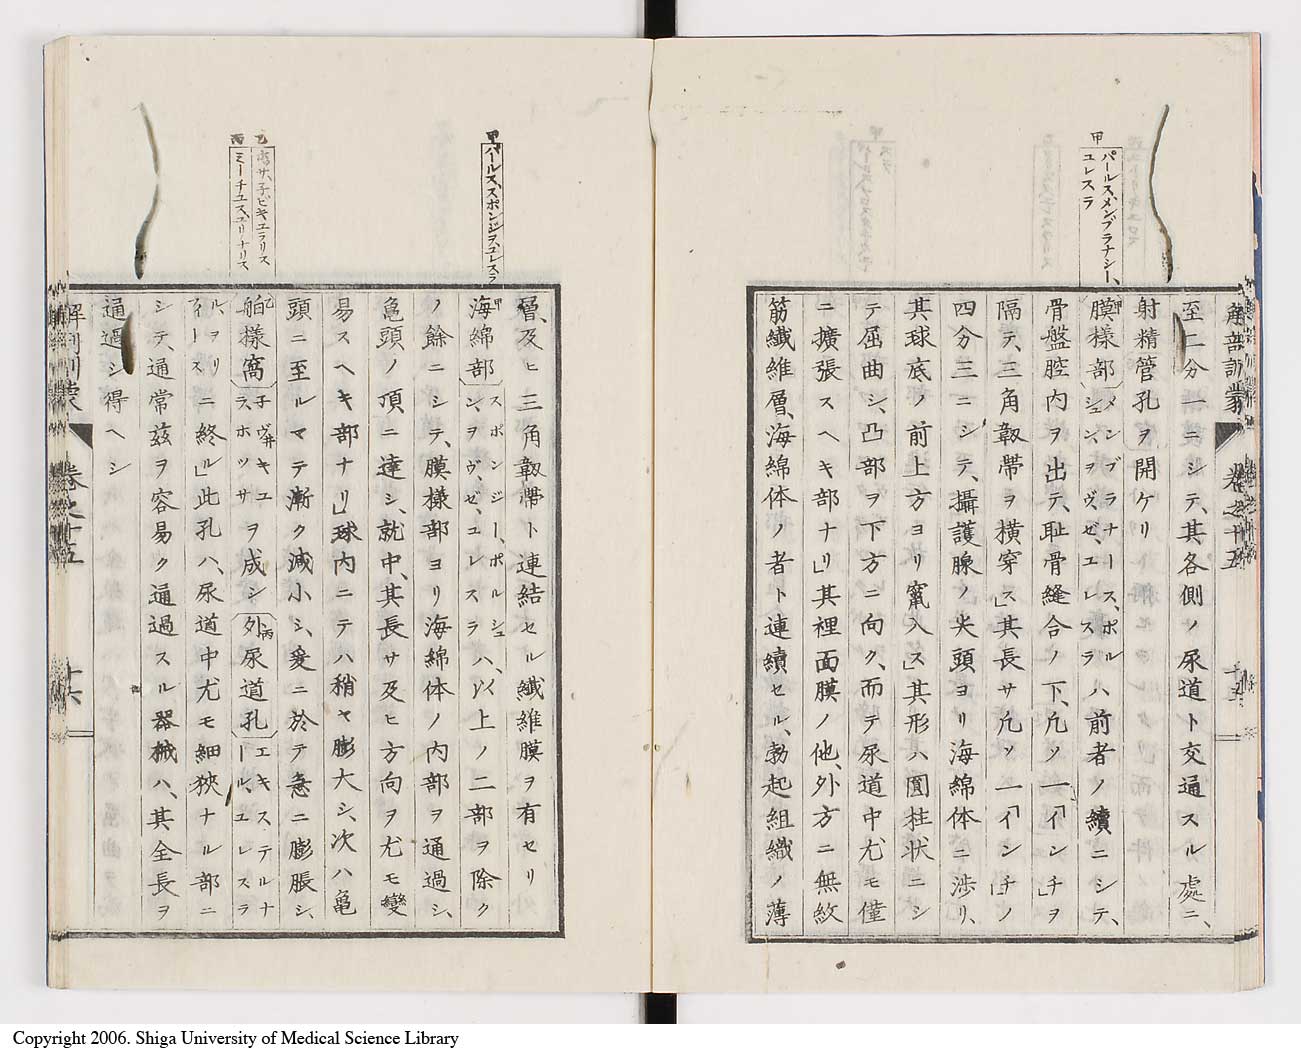 甲
パールス、メンブラナシー、
ユレスラ
至二分一ニシテ、其各側ノ尿道ト交通スル處ニ、
射精管孔ヲ開ケリ
膜樣部メンブラナース、ポルシュン、ヲヴ、ゼ、ユレスラハ前者ノ續ニシテ、
骨盤腔內ヲ出テ、耻骨縫合ノ下、凢ソ一「インチ」ヲ
隔テ、三角靱帶ヲ橫穿ス」其長サ凢ソ一「インチ」ノ
四分三ニシテ、攝護腺ノ尖頭ヨリ海綿体ニ涉リ、
其球底ノ前上方ヨリ竄入ス」其形ハ圓柱狀ニシ
テ屈曲シ、凸部ヲ下方ニ向ク、而テ尿道中尤モ僅
ニ擴張スヘキ部ナリ」其裡面膜ノ他、外方ニ無紋
筋纎維層、海綿体ノ者ト連續セル、勃起組織ノ薄
甲
パールス、スポンジヲ、ユレスラ
乙
ナビキユラリス
丙
ミーチユス、ユリナリス
層、及ヒ三角靱帶ト連結セル纎維膜ヲ有セリ
海綿部スポンジー、ポルシュン、ヲヴ、ゼ、ユレスラハ、以上ノ二部ヲ除ク
ノ餘ニシテ、膜樣部ヨリ海綿体ノ內部ヲ通過シ、
亀頭ノ頂ニ達シ、就中、其長サ及ヒ方向ヲ尤モ變
易スヘキ部ナリ」球內ニテハ稍ヤ膨大シ、次ハ亀
頭ニ至ルマテ漸ク減小シ、爰ニ於テ急ニ膨脹シ、
舶樣窩ヲ成シ外尿道孔エキステルナール、ユレスラ
ル、ヲリフィースニ終ル」此孔ハ、尿道中尤モ細狹ナル部ニ
シテ、通常玆ヲ容易ク通過スル器械ハ、其全長ヲ
通過シ得ヘシ
解剖訓蒙
卷之十五
十六
Copyright 2006. Shiga University of Medical Science Library